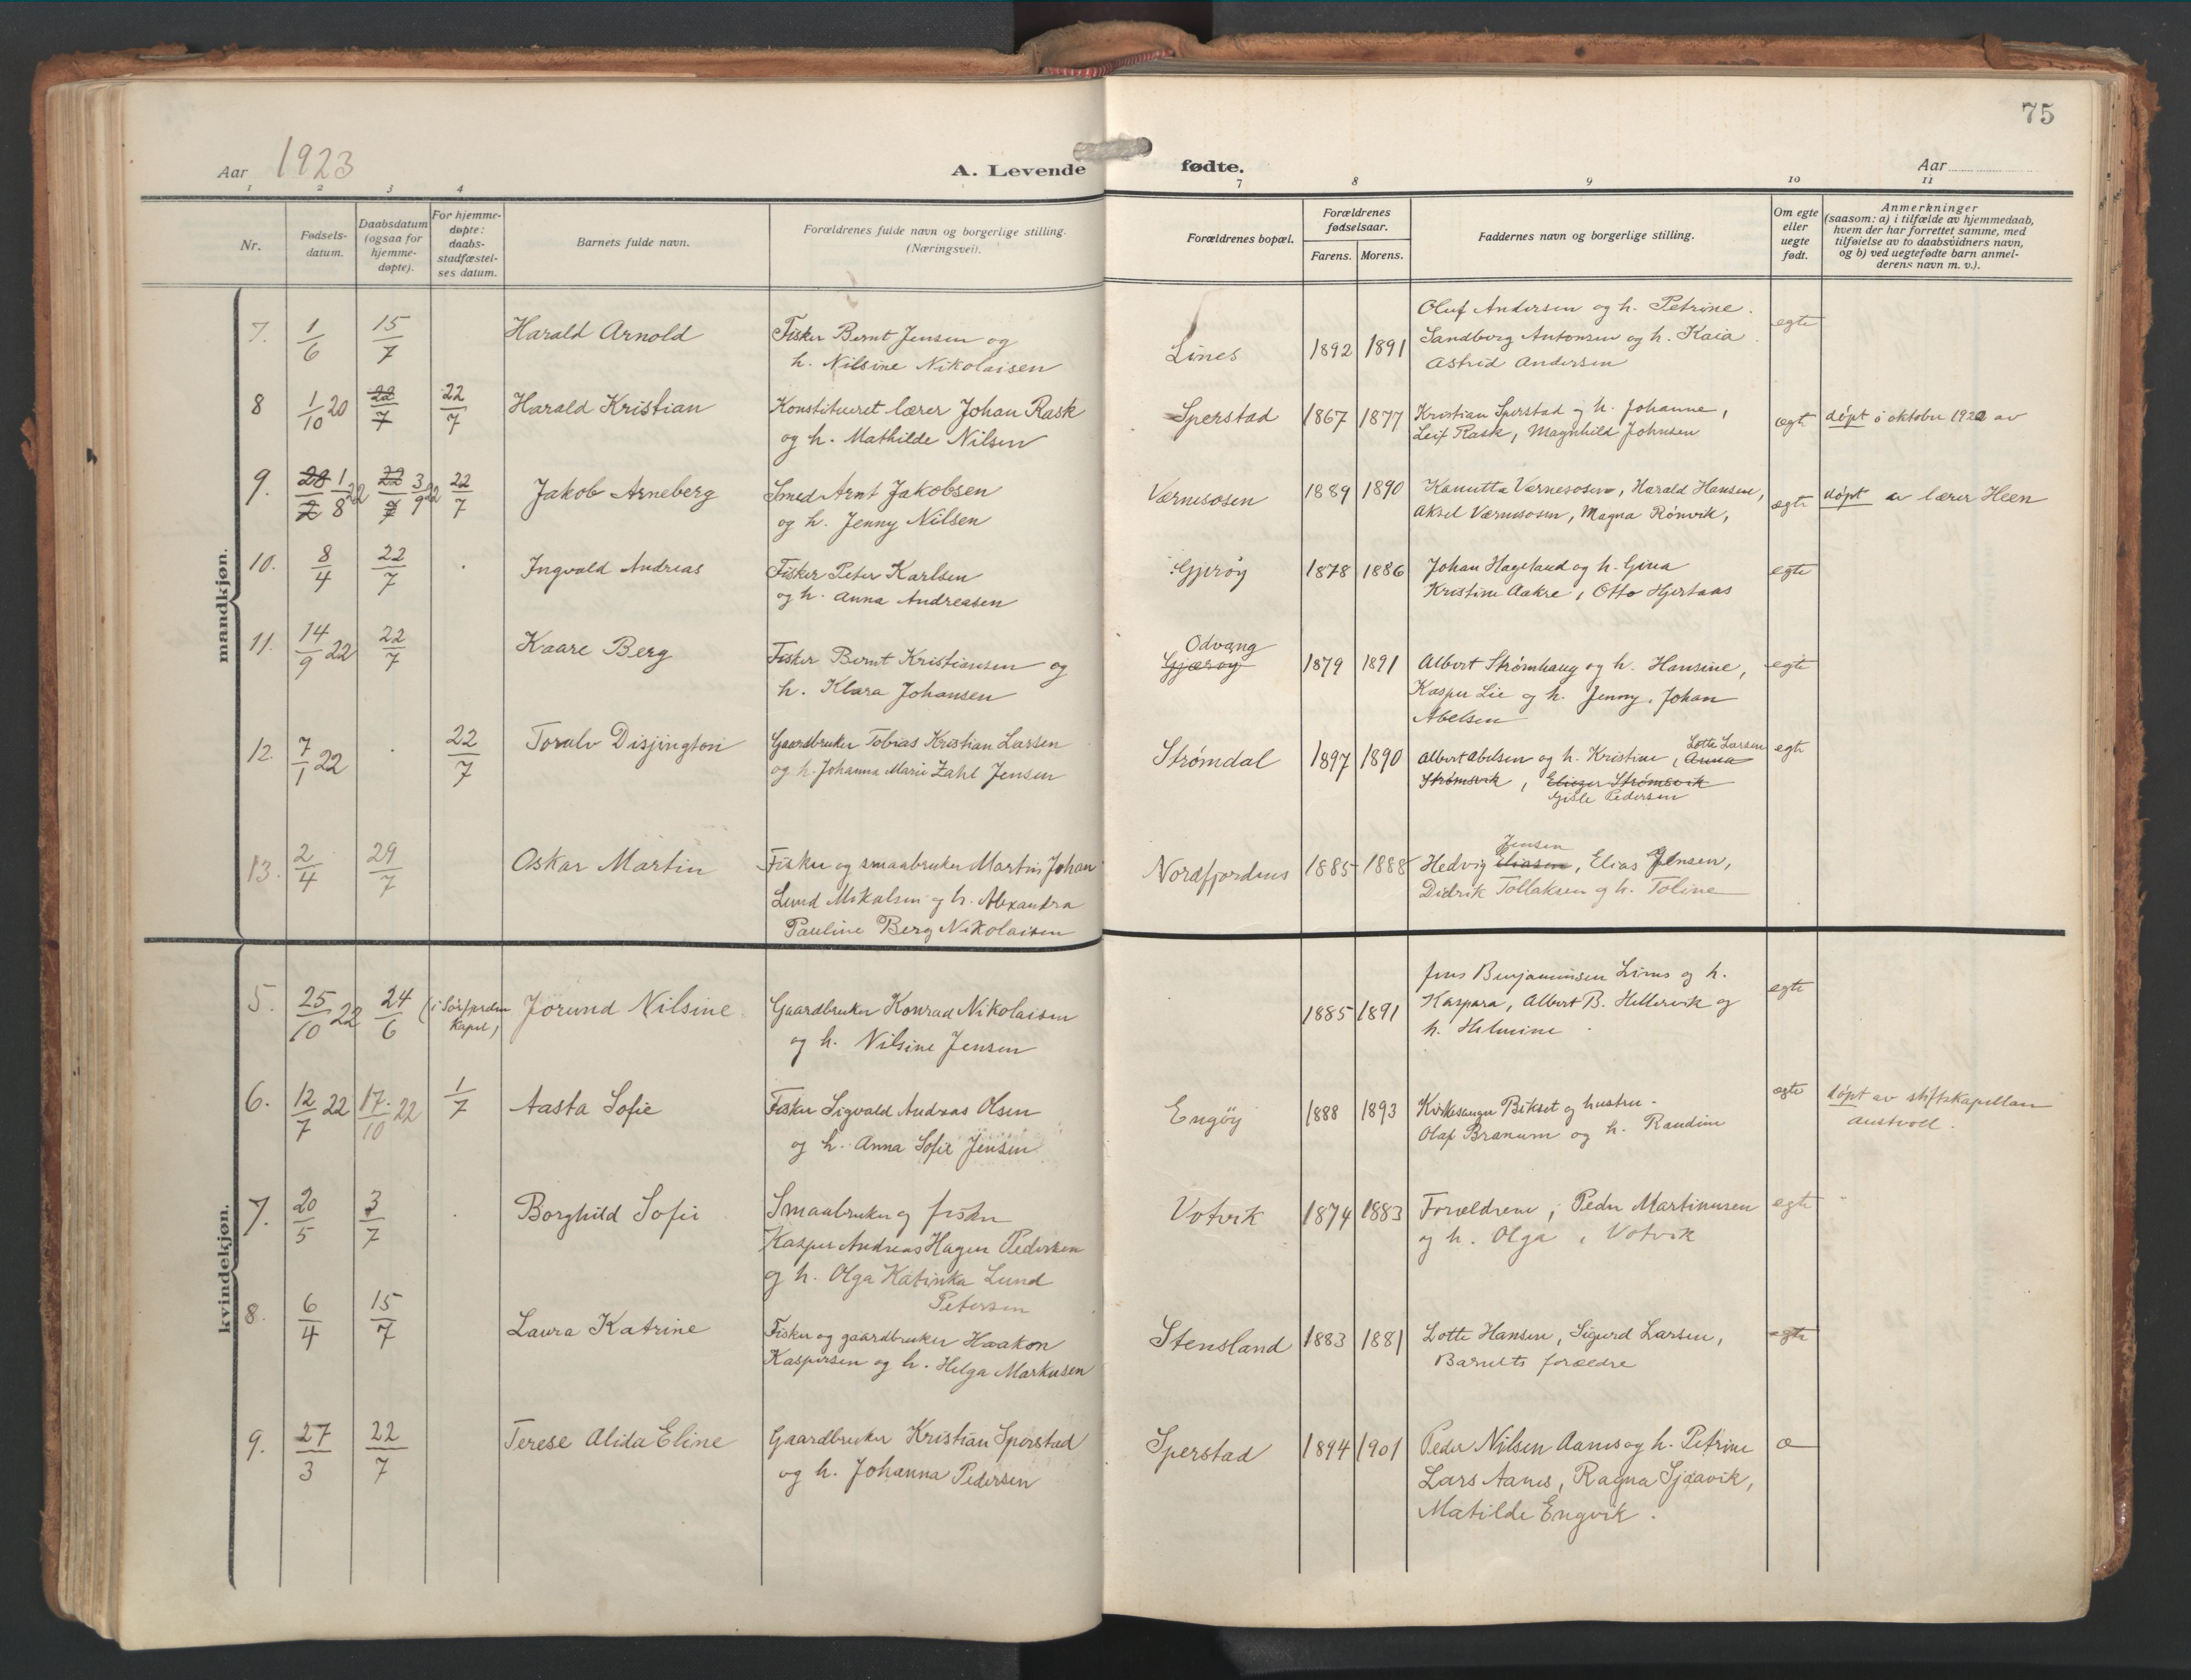 75
Aar 1923
A. Levende fødte.
Aar
1 2 3 4 7 8 9 10 11
Nr.
Fødsels-
datum.
Daabsdatum
(ogsaa for
hjemme-
døpte).
For hjemme-
døpte:
daabs-
stadfæstel-
ses datum.
Barnets fulde navn.
Forældrenes fulde navn og borgerlige stilling.
(Næringsvei).
Forældrenes bopæl.
Forældrenes
fødselsaar.
Farens. Morens.
Faddernes navn og borgerlige stilling.
Om egte
eller
uegte
født.
Anmerkninger
(saasom: a) i tilfælde av hjemmedaab,
hvem der har forrettet samme, med
tilføielse av to daabsvidners navn,
og b) ved uegtefødte barn anmel-
derens navn m. v.).
mandkjøn.
7. 1/6 15/7 Harald Arnold
Fisker Bernt Jensen og
h. Nilsine Nikolaisen
Lines 1892 1891
Oluf Andersen og h. Petrine.
Sandberg Antonsen og h. Kaia
Astrid Andersen
egte
8 1/10 20 22/7 22/7 Harald Kristian
Konstitueret lærer Johan Rask
og h. Mathilde Nilsen
Sperstad 1867 1877
Kristian Sperstad og h. Johanne,
Leif Rask, Magnhild Johnsen
egt
døpt i oktober 1920 av
9. 28/2 1/8 22 22/7 3/9 22 22/7 Jakob Arneberg
Smed Arnt Jakobsen
og h. Jenny Nilsen
Værnesosen 1889 1890
Kanutta Værnesosen, Harald Hansen,
Aksel Værnesosen, Magna Rönvik,
egte
døpt av lærer Heen
10. 8/4 22/7 Ingvald Andreas
Fisker Peter Karlsen
og h. Anna Andreasen
Gjerøy 1878 1886
Johan Hageland og h. Gina
Kristine Aakre, Otto Hjertaas
egte
11. 14/9 22 22/7 Kaare Berg
Fisker Bernt Kristiansen og
h. Klara Johansen
Odvang
Gjærøy
1879 1891
Albert Strømhaug og h. Hansine,
Kasper Lie og h. Jenny, Johan
Abelsen
egte
12. 7/1 22 22/7 Toralv Disjington
Gaardbruker Tobias Kristian Larsen
og h. Johanna Marie Zahl Jensen
Strømdal 1897 1890
Lotte Larsen
Albert Abelsen og h. Kristine, Anna
Strømsvik, Eliezer Strømsvik
Gisle Pedersen
egte
13. 2/4 29/7 Oskar Martin
Fisker og smaabruker Martin Johan
Lund Mikalsen og h. Alexandra
Pauline Berg Nikolaisen
Nordfjordnes 1885 1888
Jensen
Hedvig Eliasen, Elias Jensen,
Didrik Tollaksen og h. Toline
kvindekjøn.
5. 25/10 22 24/6 (i Sørfjorden
Kapel) Jorund Nilsine
Gaardbruker Konrad Nikolaisen
og h. Nilsine Jensen
1885 1891
Jens Benjaminsen Lines og h.
Kaspara, Albert B. Hellervik og
h. Helmine
egte
6. 12/7 22 17/10 22 1/7 Aasta Sofie
Fisker Sigvald Andreas Olsen
og h. Anna Sofie Jensen
Engöy 1888 1893
Kirkesanger Bikset og hustru.
Olaf Branum og h. Randine
egte
døpt av stiftskapellan
Austvoll.
7. 20/5 3/7 Borghild Sofie
Smaabruker og fisker
Kasper Andreas Hagen Pedersen
og h. Olga Katinka Lund
Petersen
Votvik 1874 1883
Forældrene, Peder Martinusen
og h. Olga, Votvik
egte
8. 6/4 15/7 Laura Katrine
Fisker og gaardbruker Haakon
Kaspersen og h. Helga Markusen
Stensland 1883 1881
Lotte Hansen, Sigurd Larsen,
Barnets forældre
egte
9. 27/3 22/7 Terese Alida Eline
Gaardbruker Kristian Sperstad
og h. Johanna Pedersen
Sperstad 1894 1901
Peder Nilsen Aanes og h. Petrine
Lars Aanes, Ragna Sjaavik,
Matilde Engvik.
æ